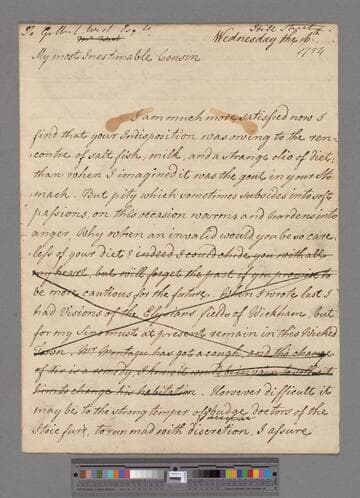 To Gilbert West Esq.
Hill Street
Wednesday the 16th
1754
My most Inestimable Cousin
I am much more satisfied now I
find that your Indisposition was owing to the ren-
contre of salt fish, milk, and a strange olio of diet;
than when I imagined it was the gout in your Sto
mach. But pity which sometimes subsides into soft
passions, on this occasion warms and hardens into
anger. Why when an invalid would you be so care
less of your diet; indeed I could chide you with all
my heart, but will forget the past if you promise to
be more cautious for the future. When I wrote last I
had Visions of the Elysians fields of Wickham, but
for my Sins must at present remain in this Wicked
Town. Mr Montagu has got a cough, and tho change
of air is a remedy, I know it would be in vain to
him to change his habitation. However difficult it
may be to the strong temper of
doctors of the
Stoic fur, to run mad with discretion, I assure